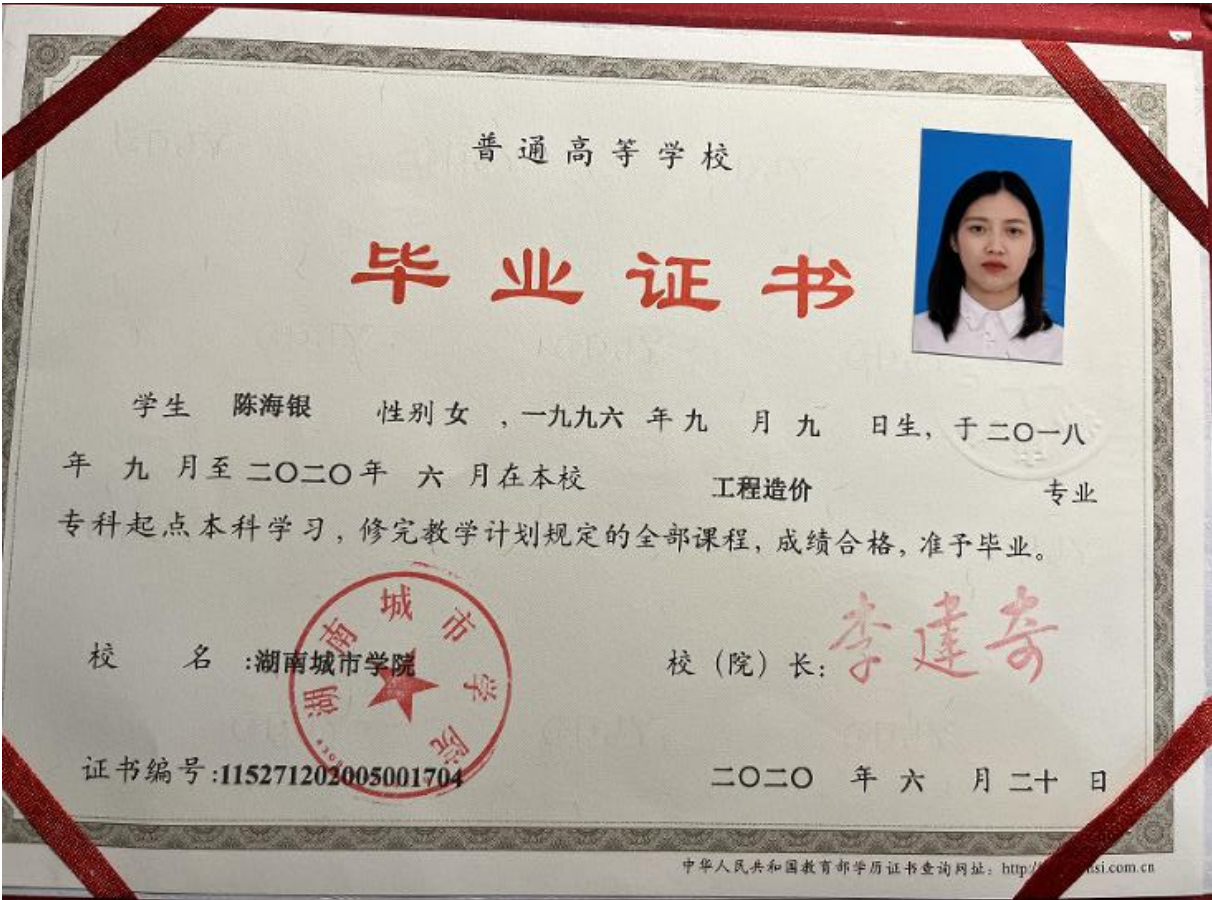 普通高等学校
毕业证书
学生 陈海银 性别 女 ，一九九六 年 九 月 九 日生，于 二〇一八
年 九 月至 二〇二〇 年 六 月在本校 工程造价 专业
专科起点本科学习，修完教学计划规定的全部课程，成绩合格，准予毕业。
校 名 :湖南城市学院
湖南城市学院
校（院）长：李建奇
证书编号:115271202005001704
二〇二〇 年 六 月 二十 日
中华人民共和国教育部学历证书查询网址：http://
si.com.cn